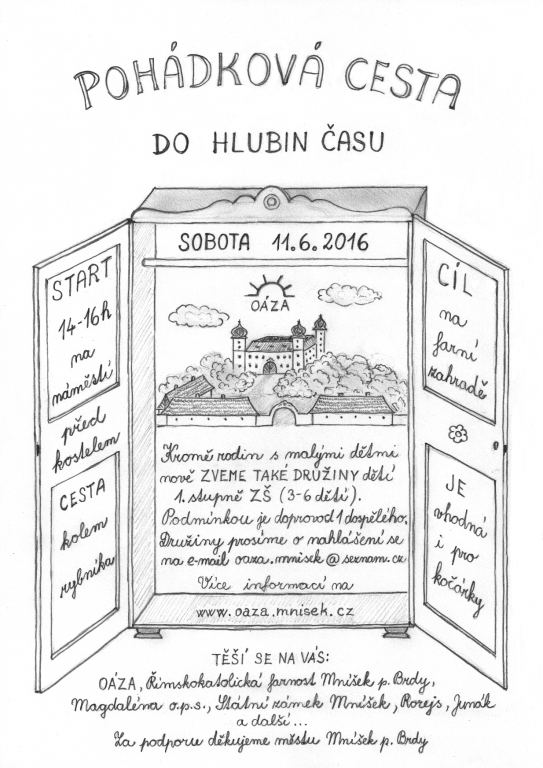 POHÁDKOVÁ CESTA
DO HLUBIN ČASU
SOBOTA 11.6.2016
START
14-16h
na
náměstí
před
kostelem
CESTA
kolem
rybníka
OÁZA
Kromě rodin s malými dětmi
nově ZVEME TAKÉ DRUŽINY dětí
1. stupně ZŠ (3-6 dětí).
Podmínkou je doprovod 1 dospělého.
Družiny prosíme o nahlášení se
na e-mail oaza.mnisek@seznam.cz
Více informací na
www.oaza.mnisek.cz
CÍL
na
farní
zahradě
JE
vhodná
i pro
kočárky
TĚŠÍ SE NA VÁS:
OÁZA, Římskokatolická farnost Mníšek p. Brdy,
Magdaléna o.p.s., Státní zámek Mníšek, Rorejs, Junák
a další...
Za podporu děkujeme městu Mníšek p. Brdy